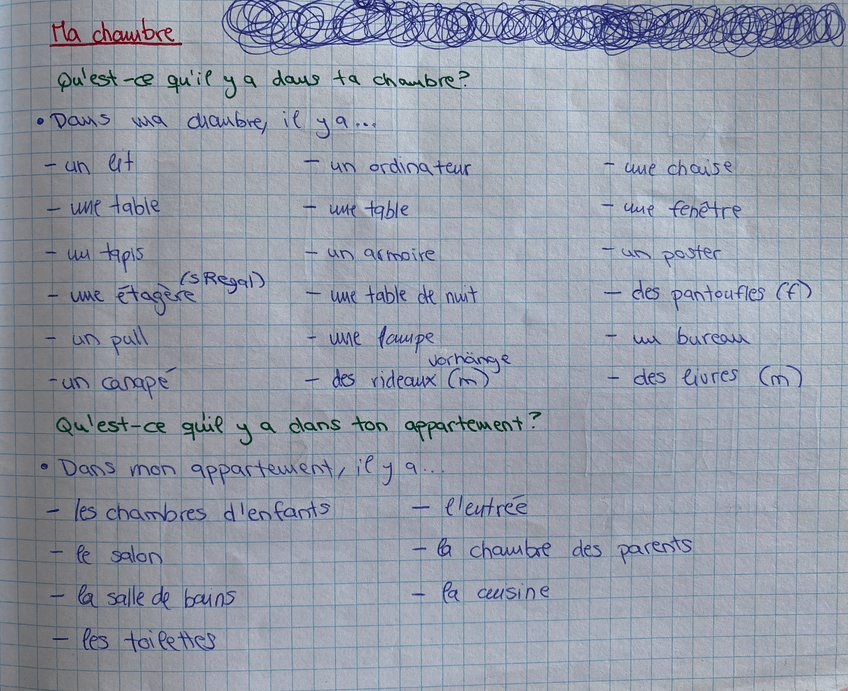 Ma chambre
Qu'est-ce qu'il y a dans ta chambre?
• Dans ma chambre, il y a...
- un lit - un ordinateur - une chaise
- une table - une table - une fenêtre
- un tapis - un armoire - un poster
(s Regal)
- une étagère - une table de nuit - des pantoufles (f)
- un pull - une lampe - un bureau
vorhänge
- un canapé - des rideaux (m) - des livres (m)
Qu'est-ce qu'il y a dans ton appartement?
• Dans mon appartement, il y a...
- les chambres d'enfants - l'entrée
- le salon - la chambre des parents
- la salle de bains - la cuisine
- les toilettes